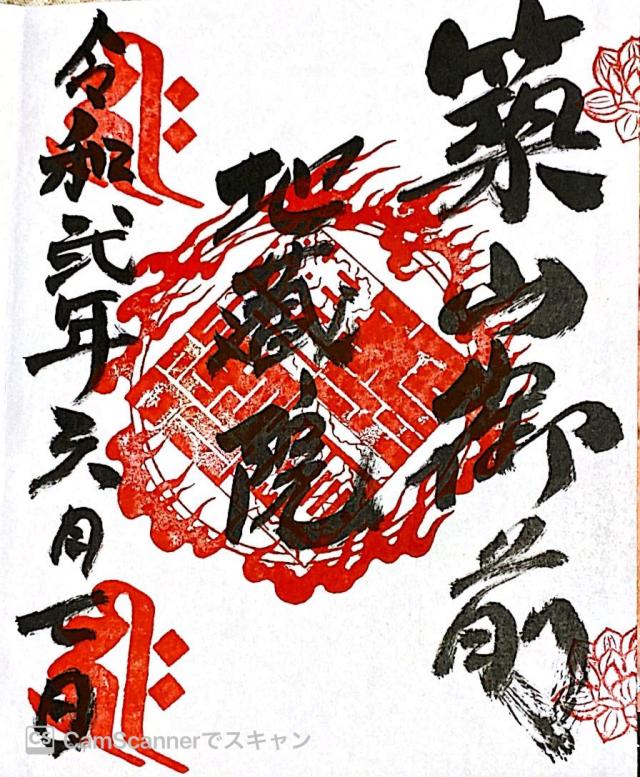 築山御前
地蔵院
令和弐年六月七日
CS CamScannerでスキャン